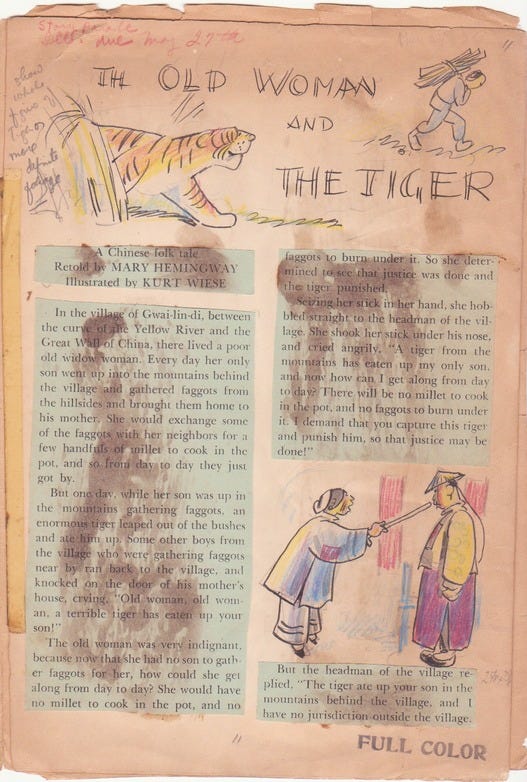 due May 27th
show
more
definite
TH OLD WOMAN
AND
THE TIGER
A Chinese folk tale
Retold by MARY HEMINGWAY
Illustrated by KURT WIESE
In the village of Gwai-lin-di, between
the curve of the Yellow River and the
Great Wall of China, there lived a poor
old widow-woman. Every day her only
son went up into the mountains behind
the village and gathered faggots from
the hillsides and brought them home to
his mother. She would exchange some
of the faggots with her neighbors for a
few handfuls of millet to cook in the
pot, and so from day to day they just
got by.
But one day, while her son was up in
the mountains gathering faggots, an
enormous tiger leaped out of the bushes
and ate him up. Some other boys from
the village who were gathering faggots
near by ran back to the village, and
knocked on the door of his mother's
house, crying, "Old woman, old wom-
an, a terrible tiger has eaten up your
son!"
The old woman was very indignant,
because now that she had no son to gath-
er faggots for her, how could she get
along from day to day? She would have
no millet to cook in the pot, and no
faggots to burn under it. So she deter-
mined to see that justice was done and
the tiger punished.
Seizing her stick in her hand, she hob-
bled straight to the headman of the vil-
lage. She shook her stick under his nose,
and cried angrily, "A tiger from the
mountains has eaten up my only son,
and now how can I get along from day
to day? There will be no millet to cook
in the pot, and no faggots to burn under
it. I demand that you capture this tiger
and punish him, so that justice may be
done!"
But the headman of the village re-
plied, "The tiger ate up your son in the
mountains behind the village, and I
have no jurisdiction outside the village.
FULL COLOR